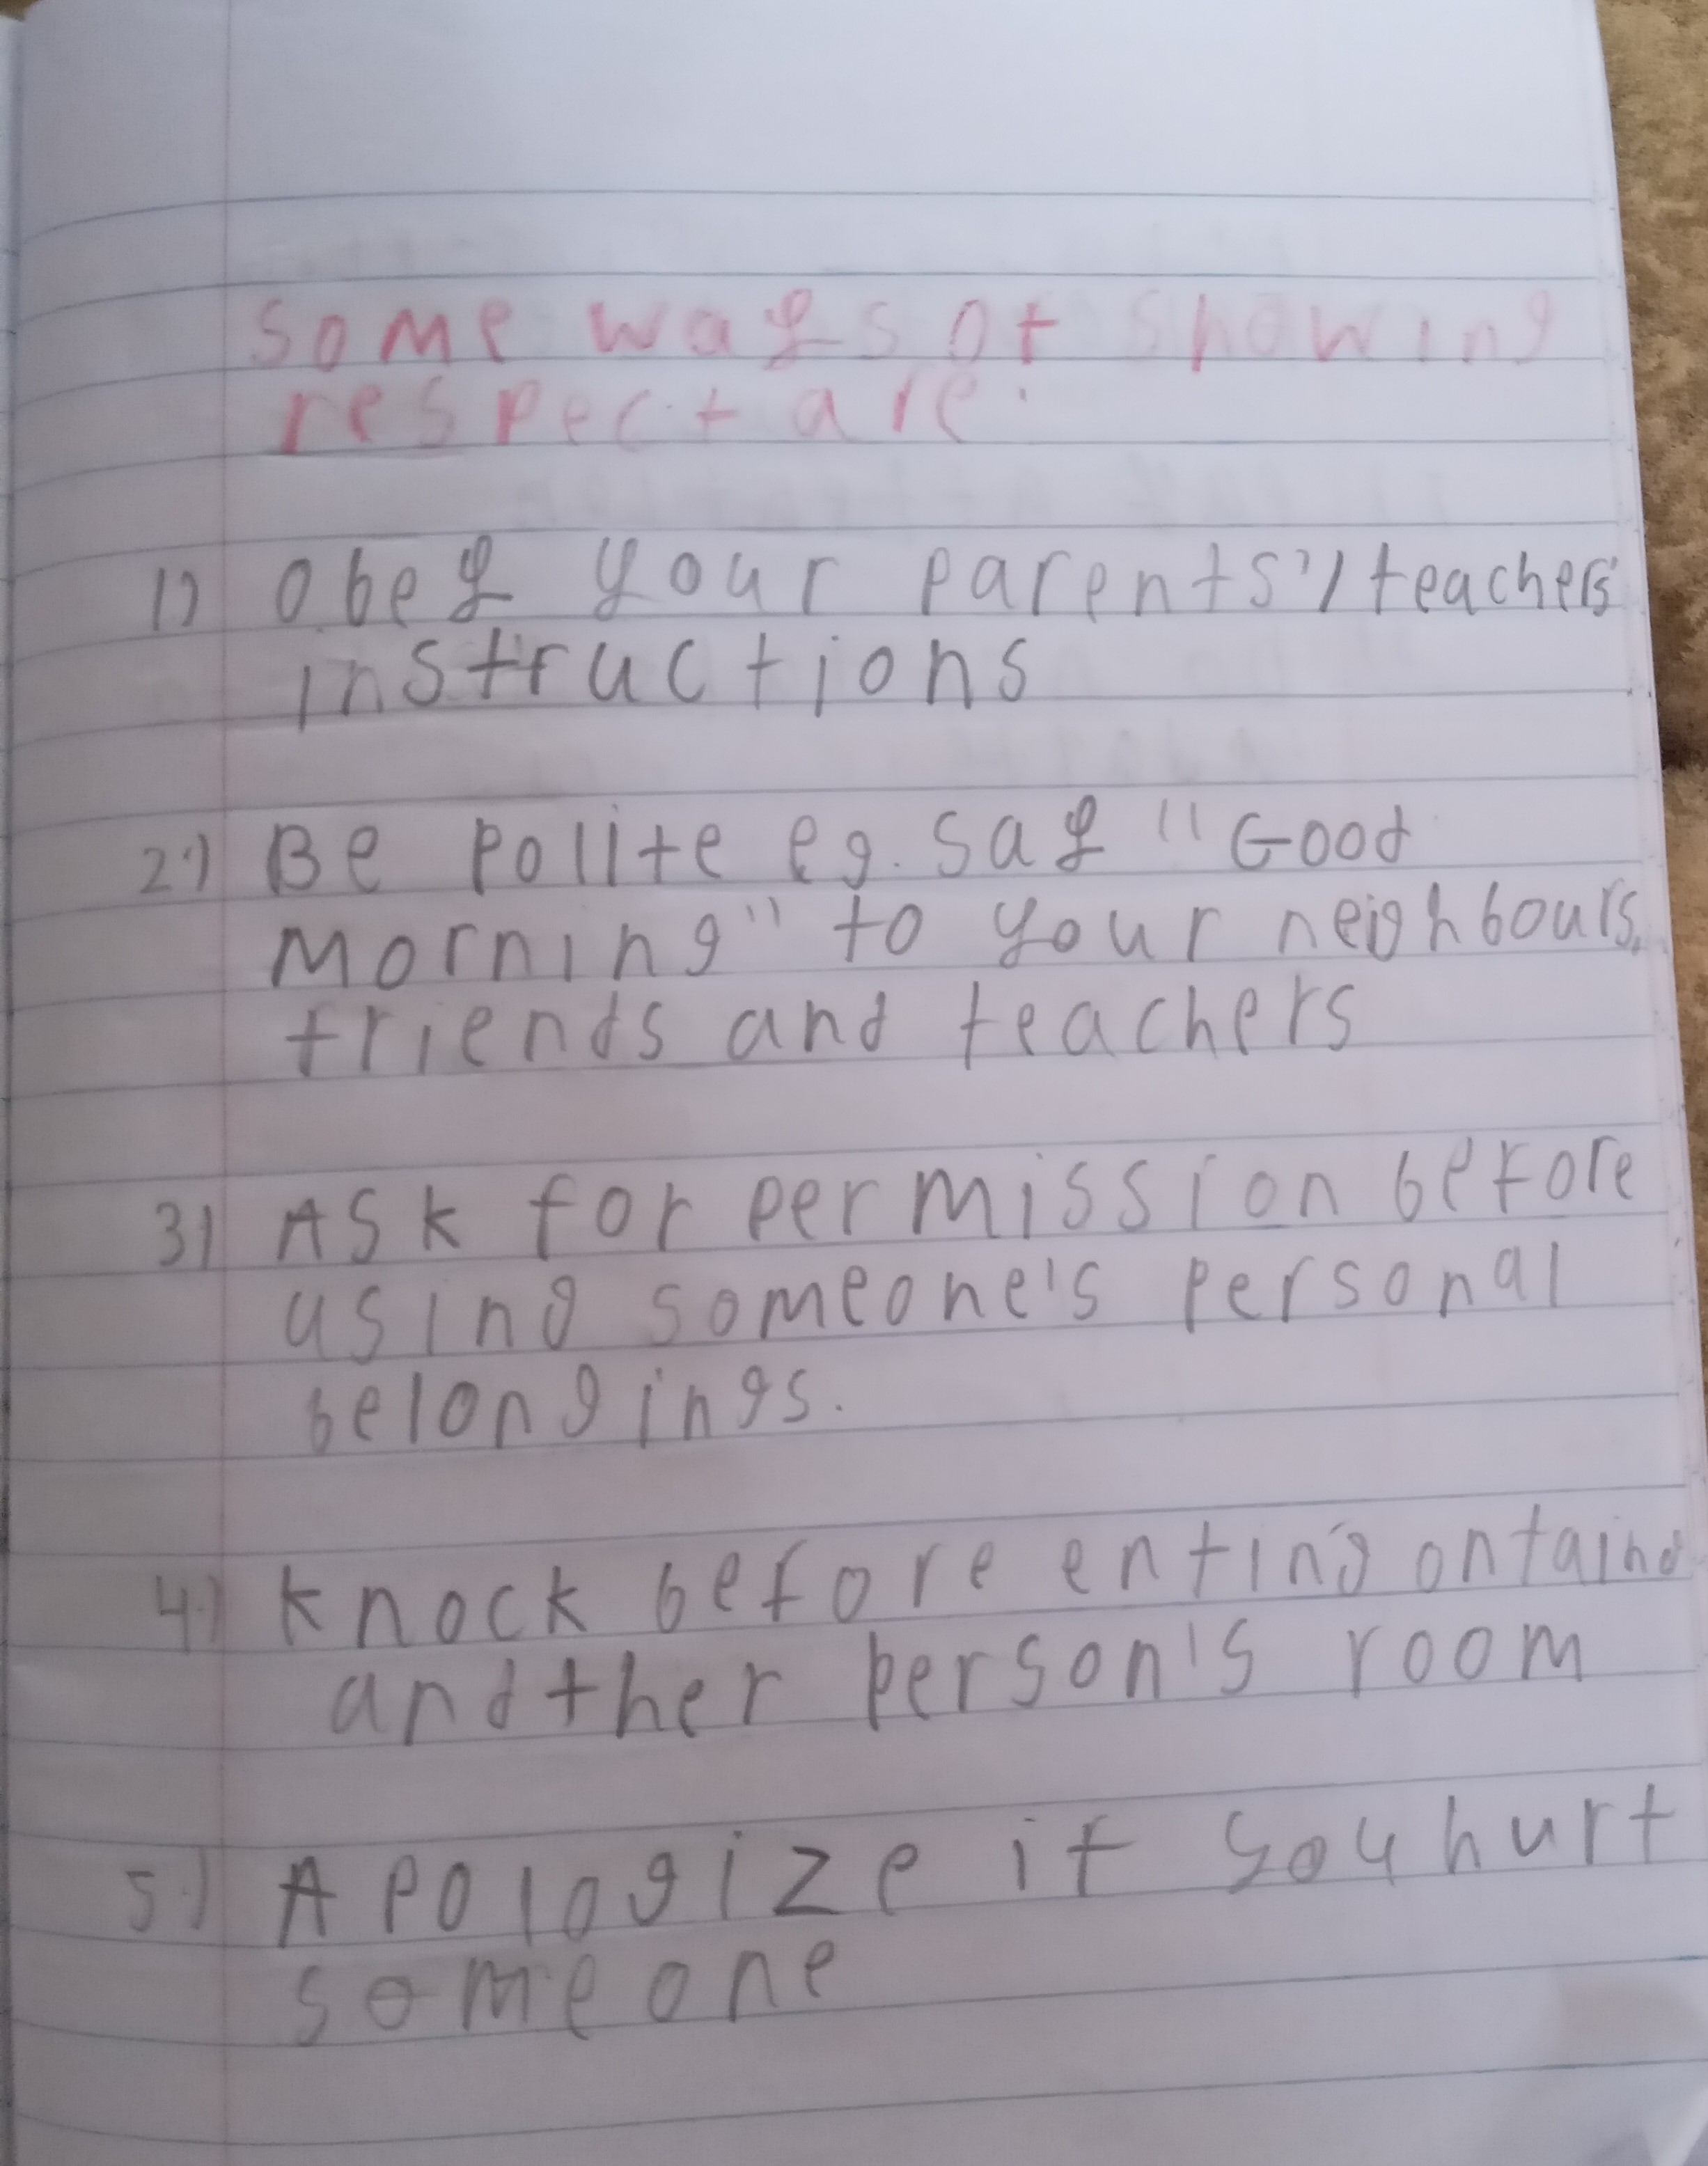 some ways of showing
respect are:
1) Obey your parents'/teachers'
instructions
2) Be polite eg. say "Good
Morning" to your neighbours,
friends and teachers
3) Ask for permission before
using someone's personal
belongings.
4) Knock before enting ontaind
andther person's room
5) Apologize if you hurt
someone